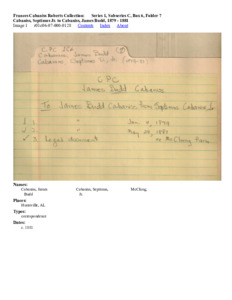 Frances Cabaniss Roberts Collection: Series 1, Subseries C, Box 6, Folder 7
Cabaniss, Septimus Jr. to Cabaniss, James Budd, 1879 - 1881
Image 1 Contents Index About
Cabaniss, James Budd
Cabaniss, Septimus D., Jr.
CPC
James Budd Cabaniss
To From Septimus Cabaniss, Jr.
1. " Jan 1879
2. " May 28, 1881
3. Legal document re McClung Farm
Names:
Cabaniss, James Cabaniss, Septimus, McClung,
Budd Jr.
Places:
Huntsville, AL
Types:
correspondence
Dates:
c. 1881